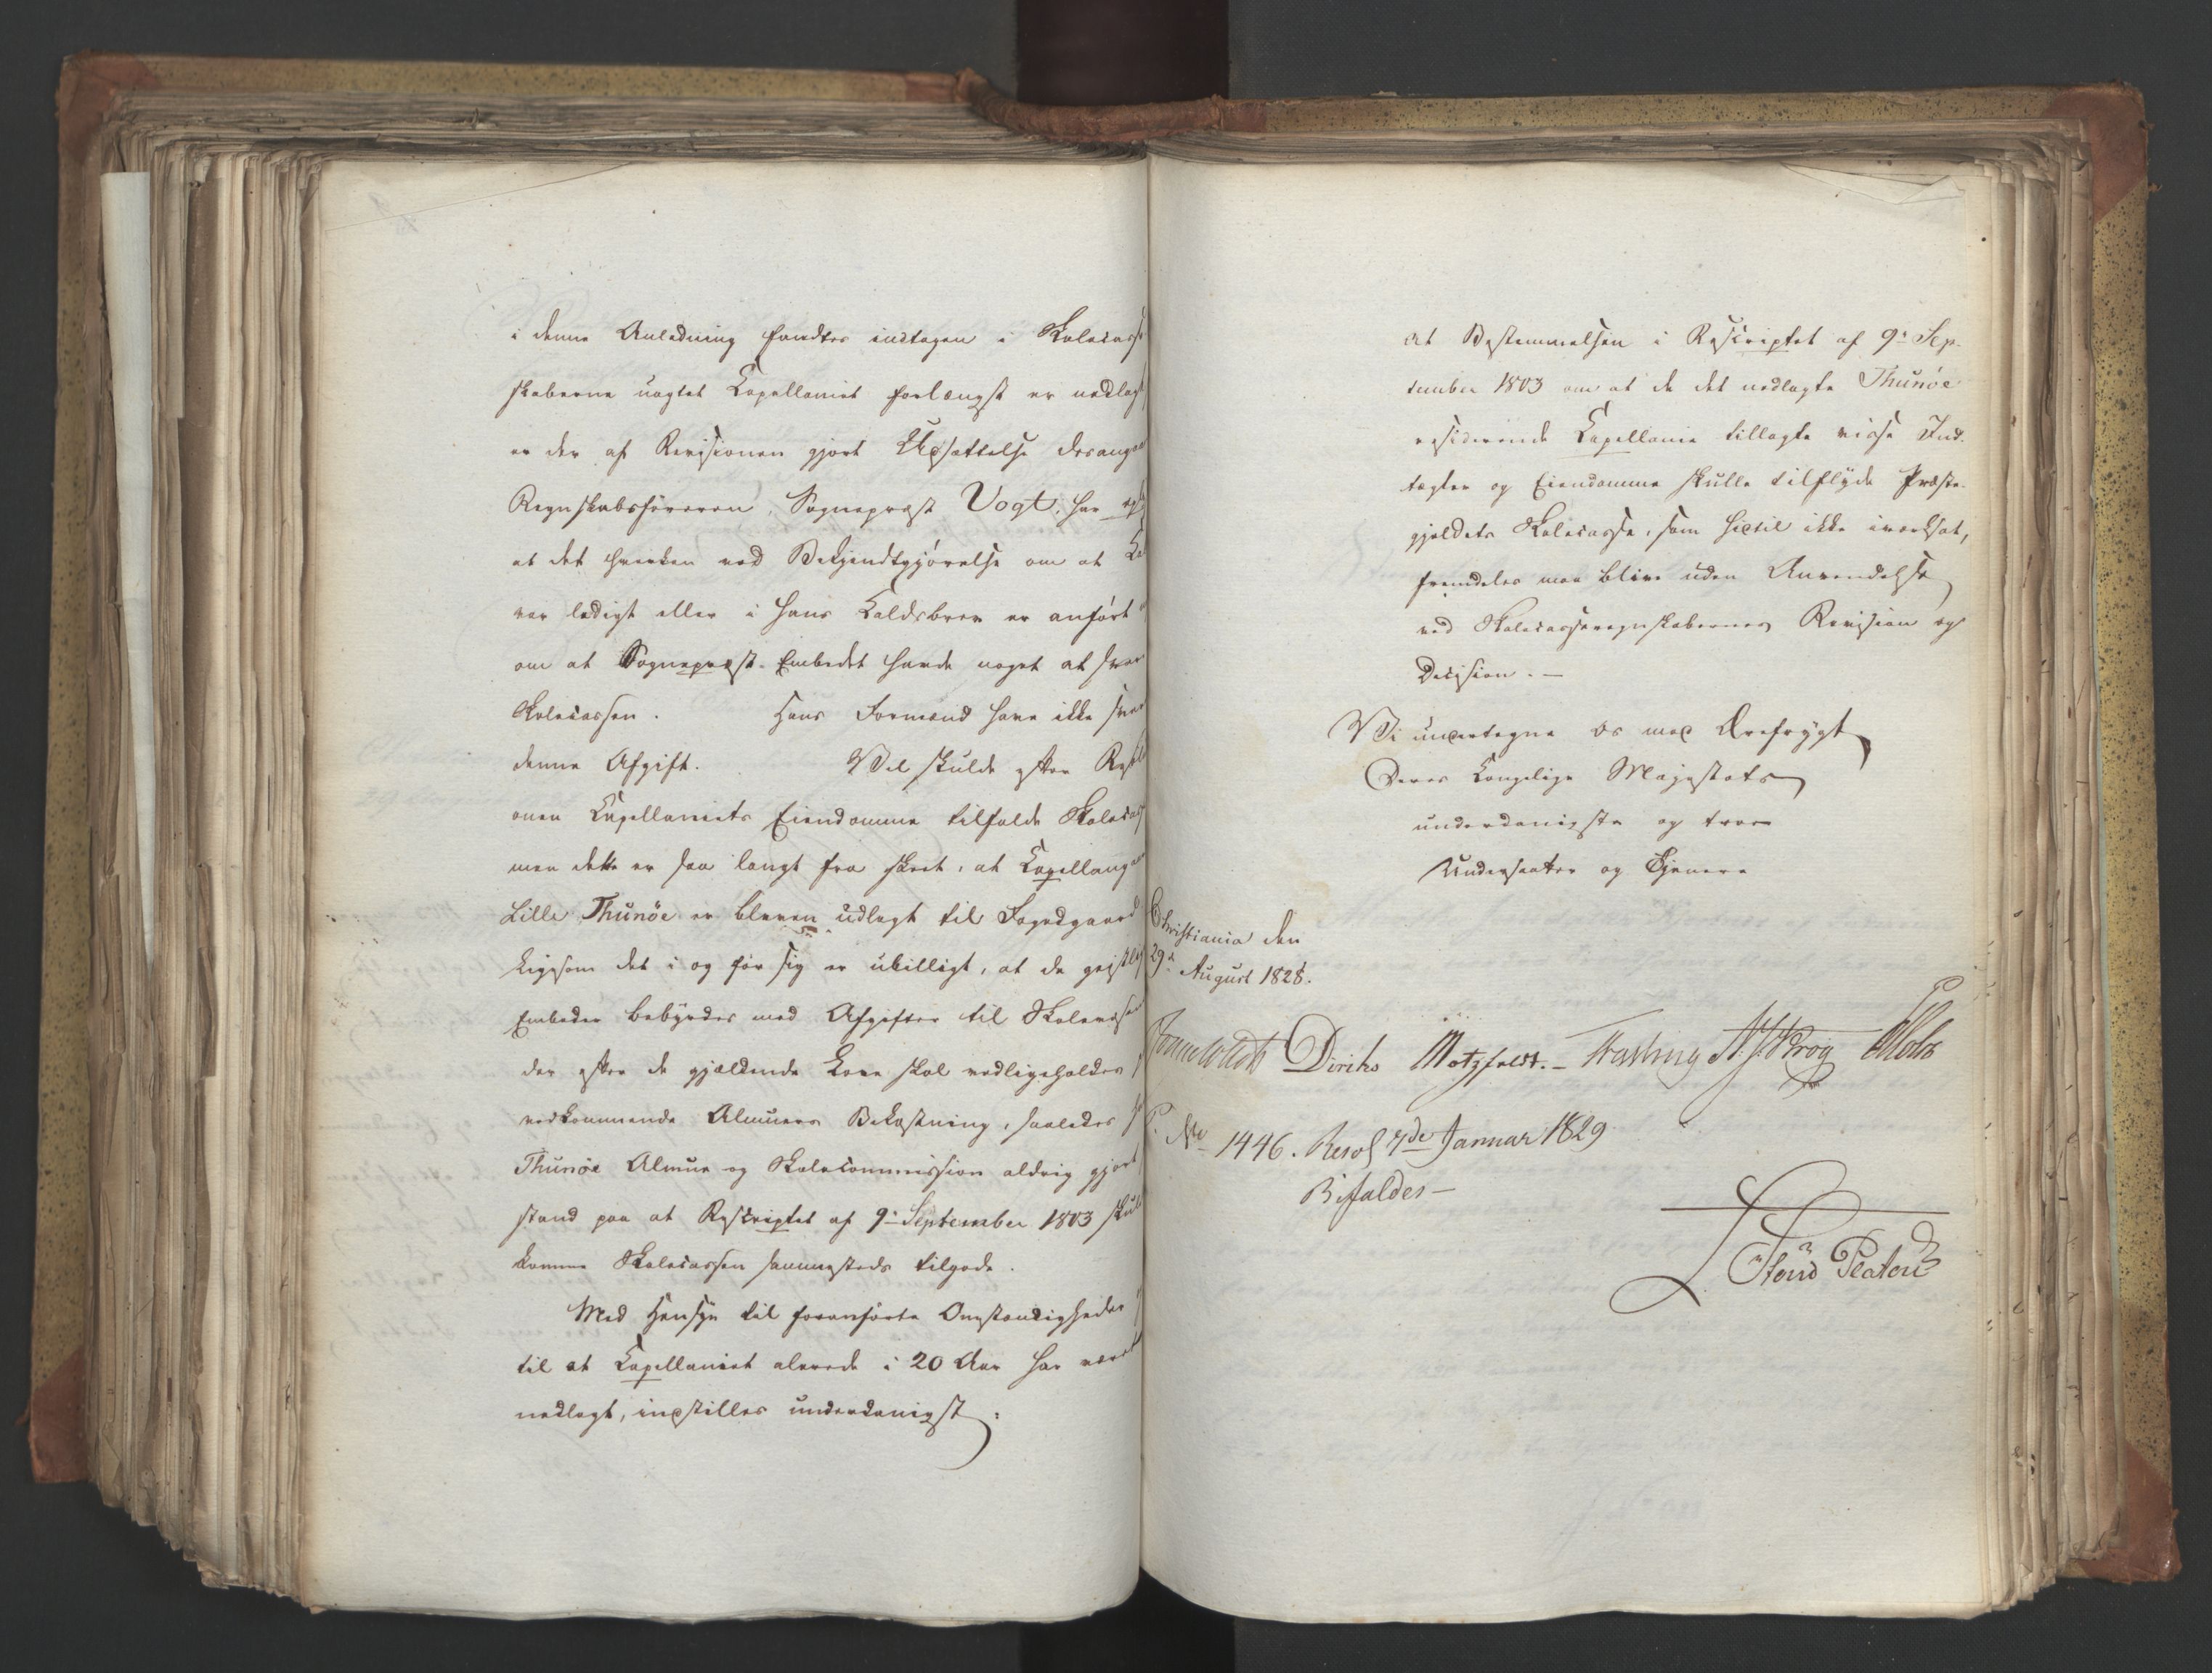 i denne Anledning fandtes indtagen i Skolecasse
skaberne uagtet Capellaniet forlængst er nedlagt
er der af Revisionen gjort Udsættelse desangaa
Regnskabsføreren, Sognepræst Vogt, har
at det hverken ved Bekjendtgjørelse om at Ka
var ledigt eller i hans Kaldsbrev er anført
om at Sognepræst-Embedet havde noget at svar
Skolecassen. Hans Formænd have ikke svar
denne Afgift. Vel skulde efter Resol
onen Capellaniets Eiendomme tilfalde Skolecas
men dette er saa langt fra skeet, at Capellangaar
Lille Thunøe er bleven udlagt til Fogedgaard
Ligesom det i og for sig er ubilligt, at de geistlig
Embeder bebyrdes med Afgifter til Skolevæse
der efter de gjældende Love skal vedligeholdes
vedkommende Almues Bekostning, saaledes
Thunøe Almue og Skolecommission aldrig gjort
stand paa at Rescriptet af 9de September 1803 skul
komme Skolecassen sammesteds tilgode.
Med Hensyn til foranførte Omstændigheder
til at Capellaniet alerede i 20 Aar har været
nedlagt, indstilles underdanigst:
at Bestemmelsen i Rescriptet af 9de Sep-
tember 1803 om at de det nedlagte Thunøe
residerende Capellanie tillagte visse Ind-
tægter og Eiendomme skulle tilflyde Præste-
gjeldets Skolecasse, som hidtil ikke iværksat,
fremdeles maa blive uden Anvendelse
ved Skolecasseregnskabernes Revision og
Decision. —
Vi undertegne os med Ærefrygt
Deres Kongelige Majestæts
underdanigste og troe
Undersaatter og Tjenere
Christiania den
29de August 1828.
Diriks Motzfeldt. – Fasting N. J. Krog P Holst
P. No 1446. Resol 7de Januar 1829
Bifaldes —